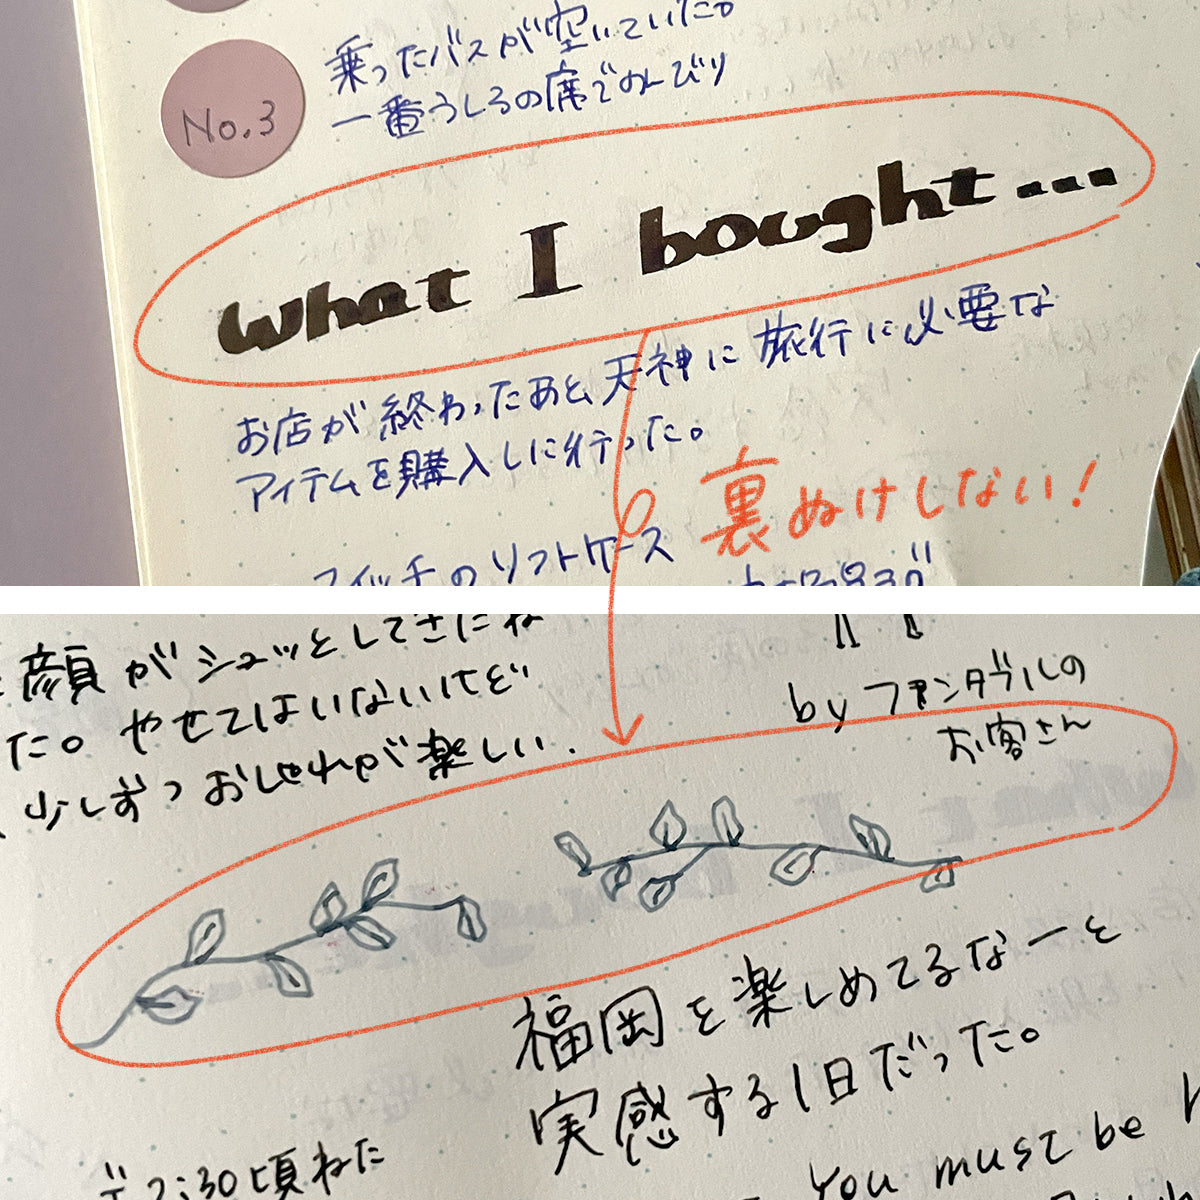 No.3
乗ったバスが空いていた。
一番うしろの席でのんびり
What I bought...
お店が終わったあと天神に旅行に必要な
アイテムを購入しに行った。
裏ぬけしない！
スイッチのソフトケース
顔がシュッとしてきたね
た。やせてはいないけど
少しずつおしゃれが楽しい.
by ファンダブルの
お客さん
福岡を楽しめてるなーと
実感する1日だった。
7:30頃ねた
You must be